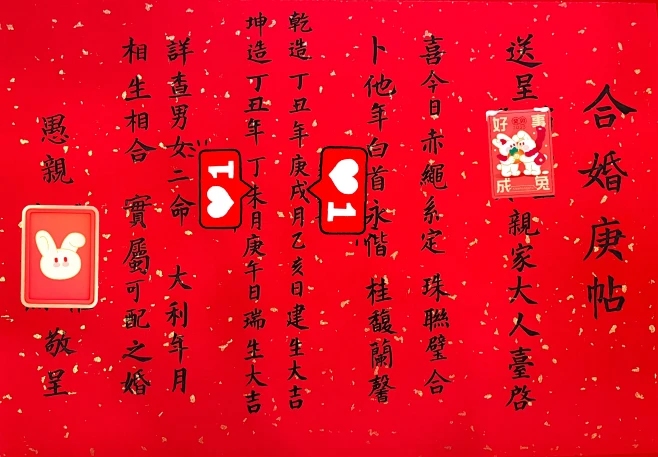 合婚庚帖
送呈 親家大人臺啓
好事
成兔
喜今日赤繩系定 珠聯璧合
卜他年白首永偕 桂馥蘭馨
乾造丁丑年庚戌月乙亥日建生大吉
1
坤造丁丑年丁未月庚午日瑞生大吉
1
詳查男女二命 大利年月
相生相合 實屬可配之婚
愚親 敬呈